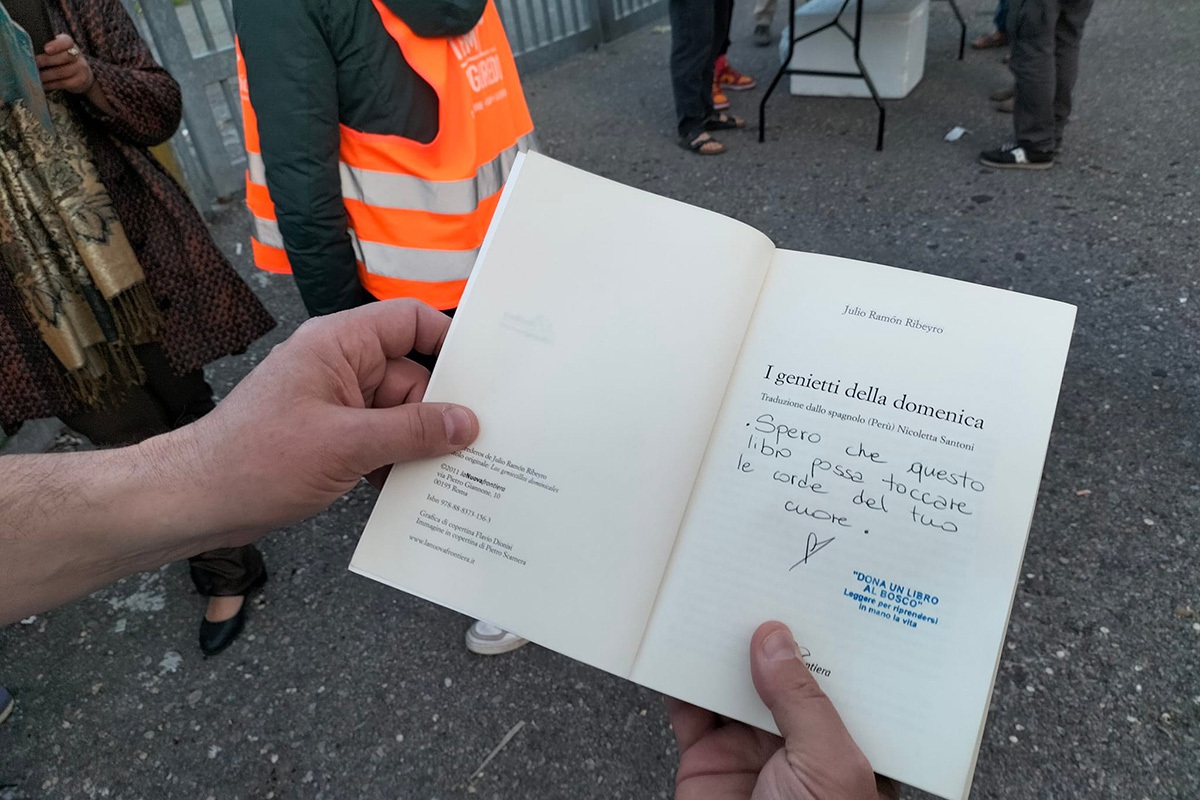 de Julio Ramón Ribeyro
originale: Los geniecillos dominicales
©2011 laNuovafrontiera
via Pietro Giannone, 10
00195 Roma
Isbn 978-88-8373-156-3
Grafica di copertina Flavio Dionisi
Immagine in copertina di Pietro Scarnera
www.lanuovafrontiera.it
Julio Ramón Ribeyro
I genietti della domenica
Traduzione dallo spagnolo (Perù) Nicoletta Santoni
. Spero che questo
libro possa toccare
le corde del tuo
cuore.
"DONA UN LIBRO
AL BOSCO"
Leggere per riprendersi
in mano la vita